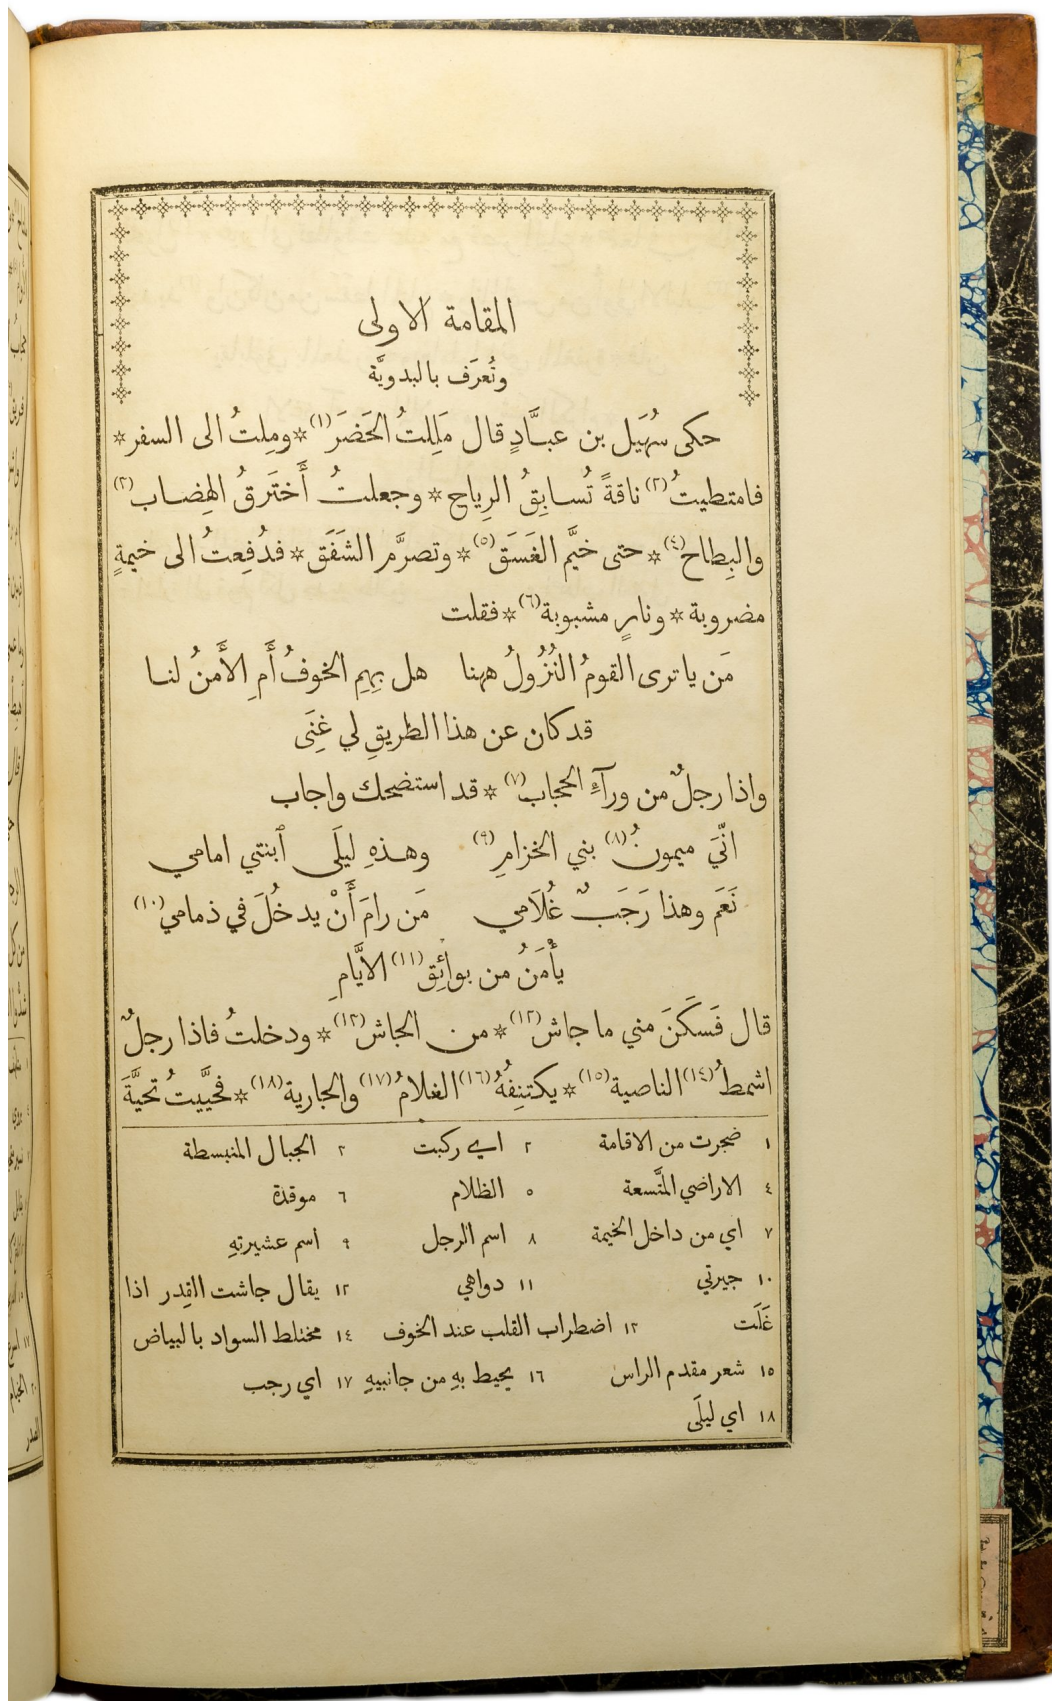 المقامة الاولى
وتُعرَف بالبدويَّة
حكى سُهَيل بن عبَّادٍ قال مَلِلتُ الحَضَرَ(١)* ومِلتُ الى السفر*
فامتطيتُ(٢) ناقةً تُسابِقُ الرِياح* وجعلتُ أَختَرقُ الهِضاب(٣)
والبِطاح(٤)* حتى خيَّم الغَسَق(٥)* وتصرَّم الشَفَق* فدُفِعتُ الى خيمةٍ
مضروبة* ونارٍ مشبوبة(٦)* فقلت
مَن يا ترى القومُ النُزُولُ ههنا هل بِهِمِ الخوفُ أَمِ الأَمنُ لنا
قد كان عن هذا الطريقِ لي غِنَى
واذا رجلٌ من ورآءِ الحجاب(٧)* قد استضحك واجاب
انّيَ ميمونُ(٨) بني الخزامِ(٩) وهذهِ ليلَى ٱبنتي امامي
نَعَم وهذا رَجَبٌ غُلَامي مَن رامَ أَنْ يدخُلَ في ذمامي(١٠)
يأْمَنُ من بوائِق(١١) الأيَّامِ
قال فَسَكَنَ مني ما جاش(١٢)* من الجاش(١٣)* ودخلتُ فاذا رجلٌ
اشمطُ(١٤) الناصية(١٥)* يكتنِفهُ(١٦) الغلامُ(١٧) والجارية(١٨)* فحيَّيتُ تحيَّةَ
١ ضجرت من الاقامة ٢ اي ركبت ٣ الجبال المنبسطة
٤ الاراضي المتَّسعة ٥ الظلام ٦ موقدة
٧ اي من داخل الخيمة ٨ اسم الرجل ٩ اسم عشيرتهِ
١٠ جيرتي ١١ دواهي ١٢ يقال جاشت القِدر اذا
غَلَت ١٣ اضطراب القلب عند الخوف ١٤ مختلط السواد بالبياض
١٥ شعر مقدم الراس ١٦ يحيط بهِ من جانبيهِ ١٧ اي رجب
١٨ اي ليلَى